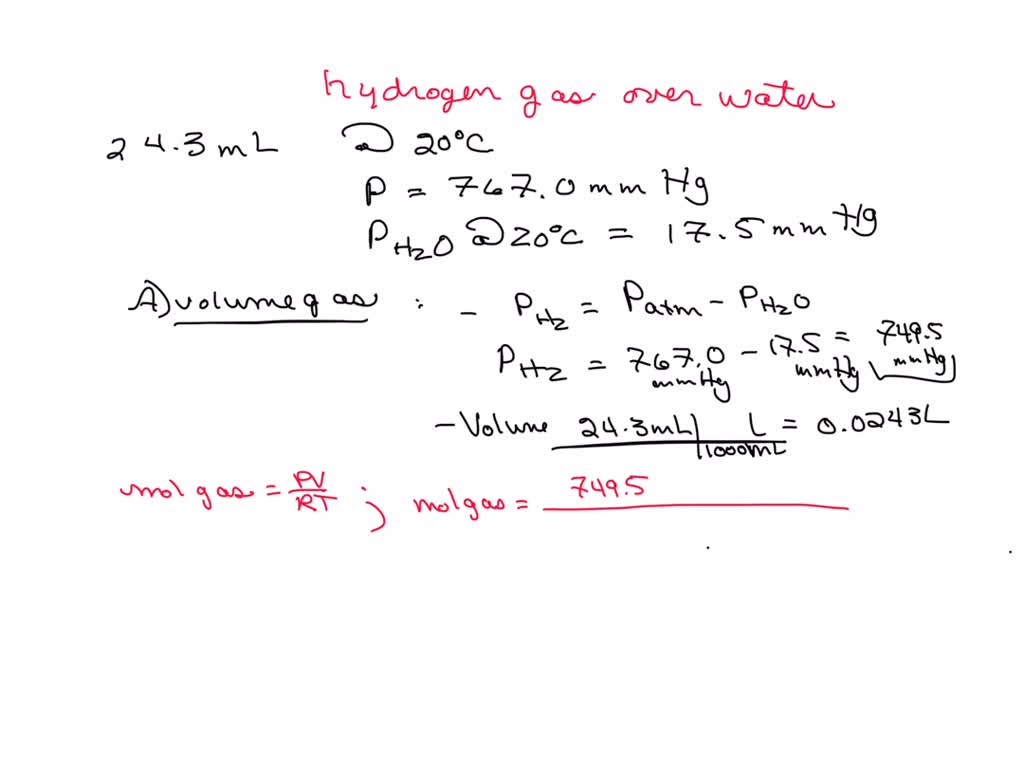 hydrogen gas over water
24.3 mL @ 20°C
P = 767.0 mm Hg
P H₂O @ 20°C = 17.5 mm Hg
A) volume gas : - P H₂ = Patm - P H₂O
P H₂ = 767.0 mmHg - 17.5 mmHg = 749.5 mmHg
- Volume 24.3mL | L / 1000mL = 0.0243L
mol gas = PV/RT ; mol gas = 749.5